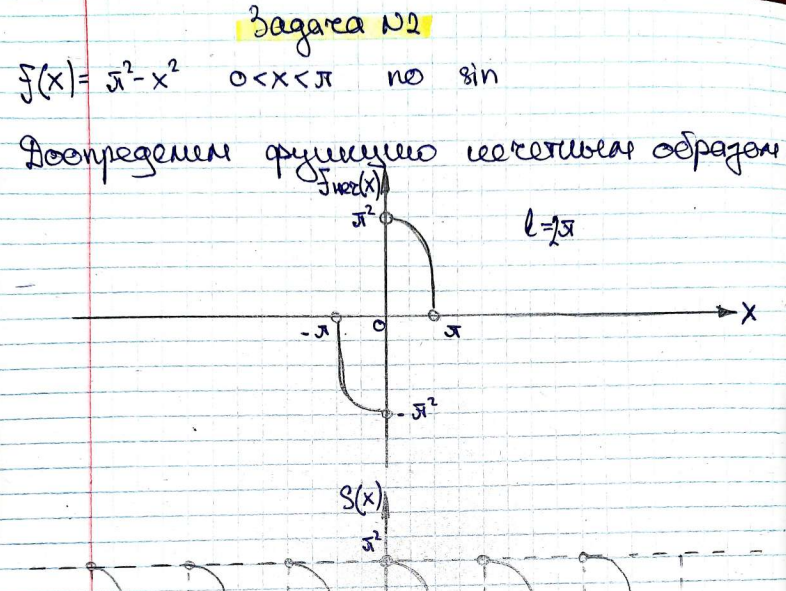 Задача №2
f(x) = π² - x²   0 < x < π   по sin
Доопределим функцию нечетным образом
fнеч(x)
π²
l = 2π
-π   0   π   x
-π²
S(x)
π²